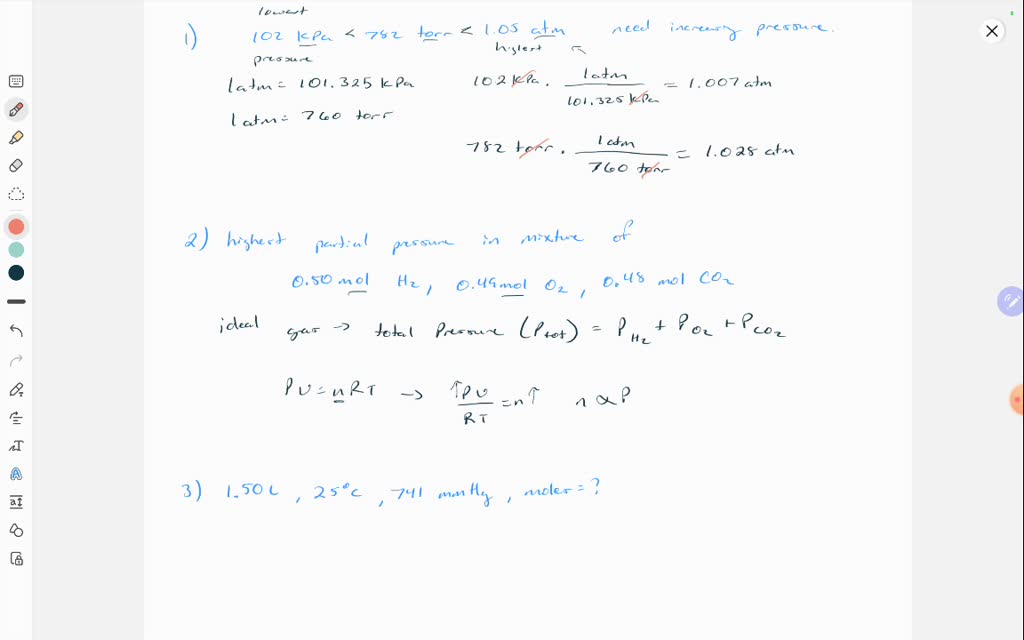 lowest
1) 102 kPa < 782 torr < 1.05 atm need increasing pressure.
pressure highest
1atm = 101.325 kPa 102 kPa · 1atm / 101.325 kPa = 1.007 atm
1atm = 760 torr
782 torr · 1atm / 760 torr = 1.028 atm
2) highest partial pressure in mixture of
0.50 mol H2, 0.49 mol O2, 0.48 mol CO2
ideal gas → total Pressure (Ptot) = PH2 + PO2 + PCO2
PV = nRT → ↑PV / RT = n↑ n ∝ P
3) 1.50L, 25°C, 741 mmHg, moles = ?